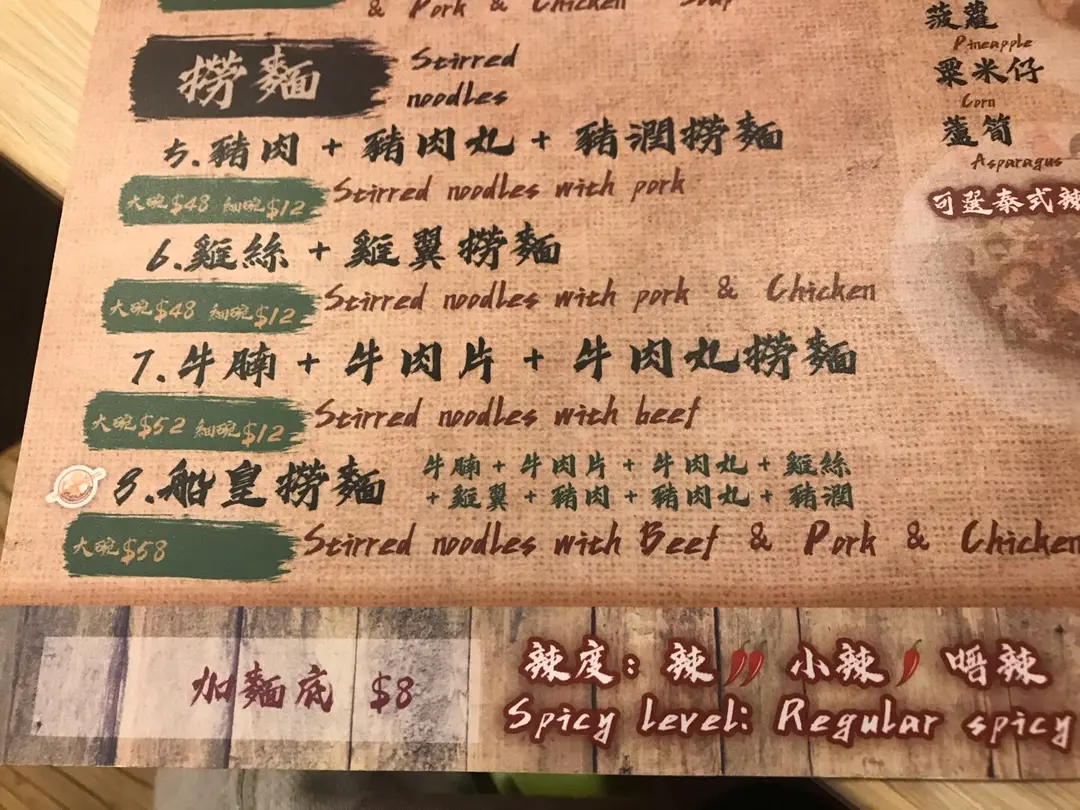 & Pork & Chicken Soup
撈麵
Stirred
noodles
5.豬肉 + 豬肉丸 + 豬潤撈麵
大碗$48 細碗$12
Stirred noodles with pork
6.雞絲 + 雞翼撈麵
大碗$48 細碗$12
Stirred noodles with pork & Chicken
7.牛腩 + 牛肉片 + 牛肉丸撈麵
大碗$52 細碗$12
Stirred noodles with beef
8.船皇撈麵
牛腩 + 牛肉片 + 牛肉丸 + 雞絲
+ 雞翼 + 豬肉 + 豬肉丸 + 豬潤
大碗$58
Stirred noodles with Beef & Pork & Chicken
加麵底 $8
辣度：辣 小辣 唔辣
Spicy Level: Regular spicy
菠蘿
Pineapple
粟米仔
Corn
蘆筍
Asparagus
可選泰式辣